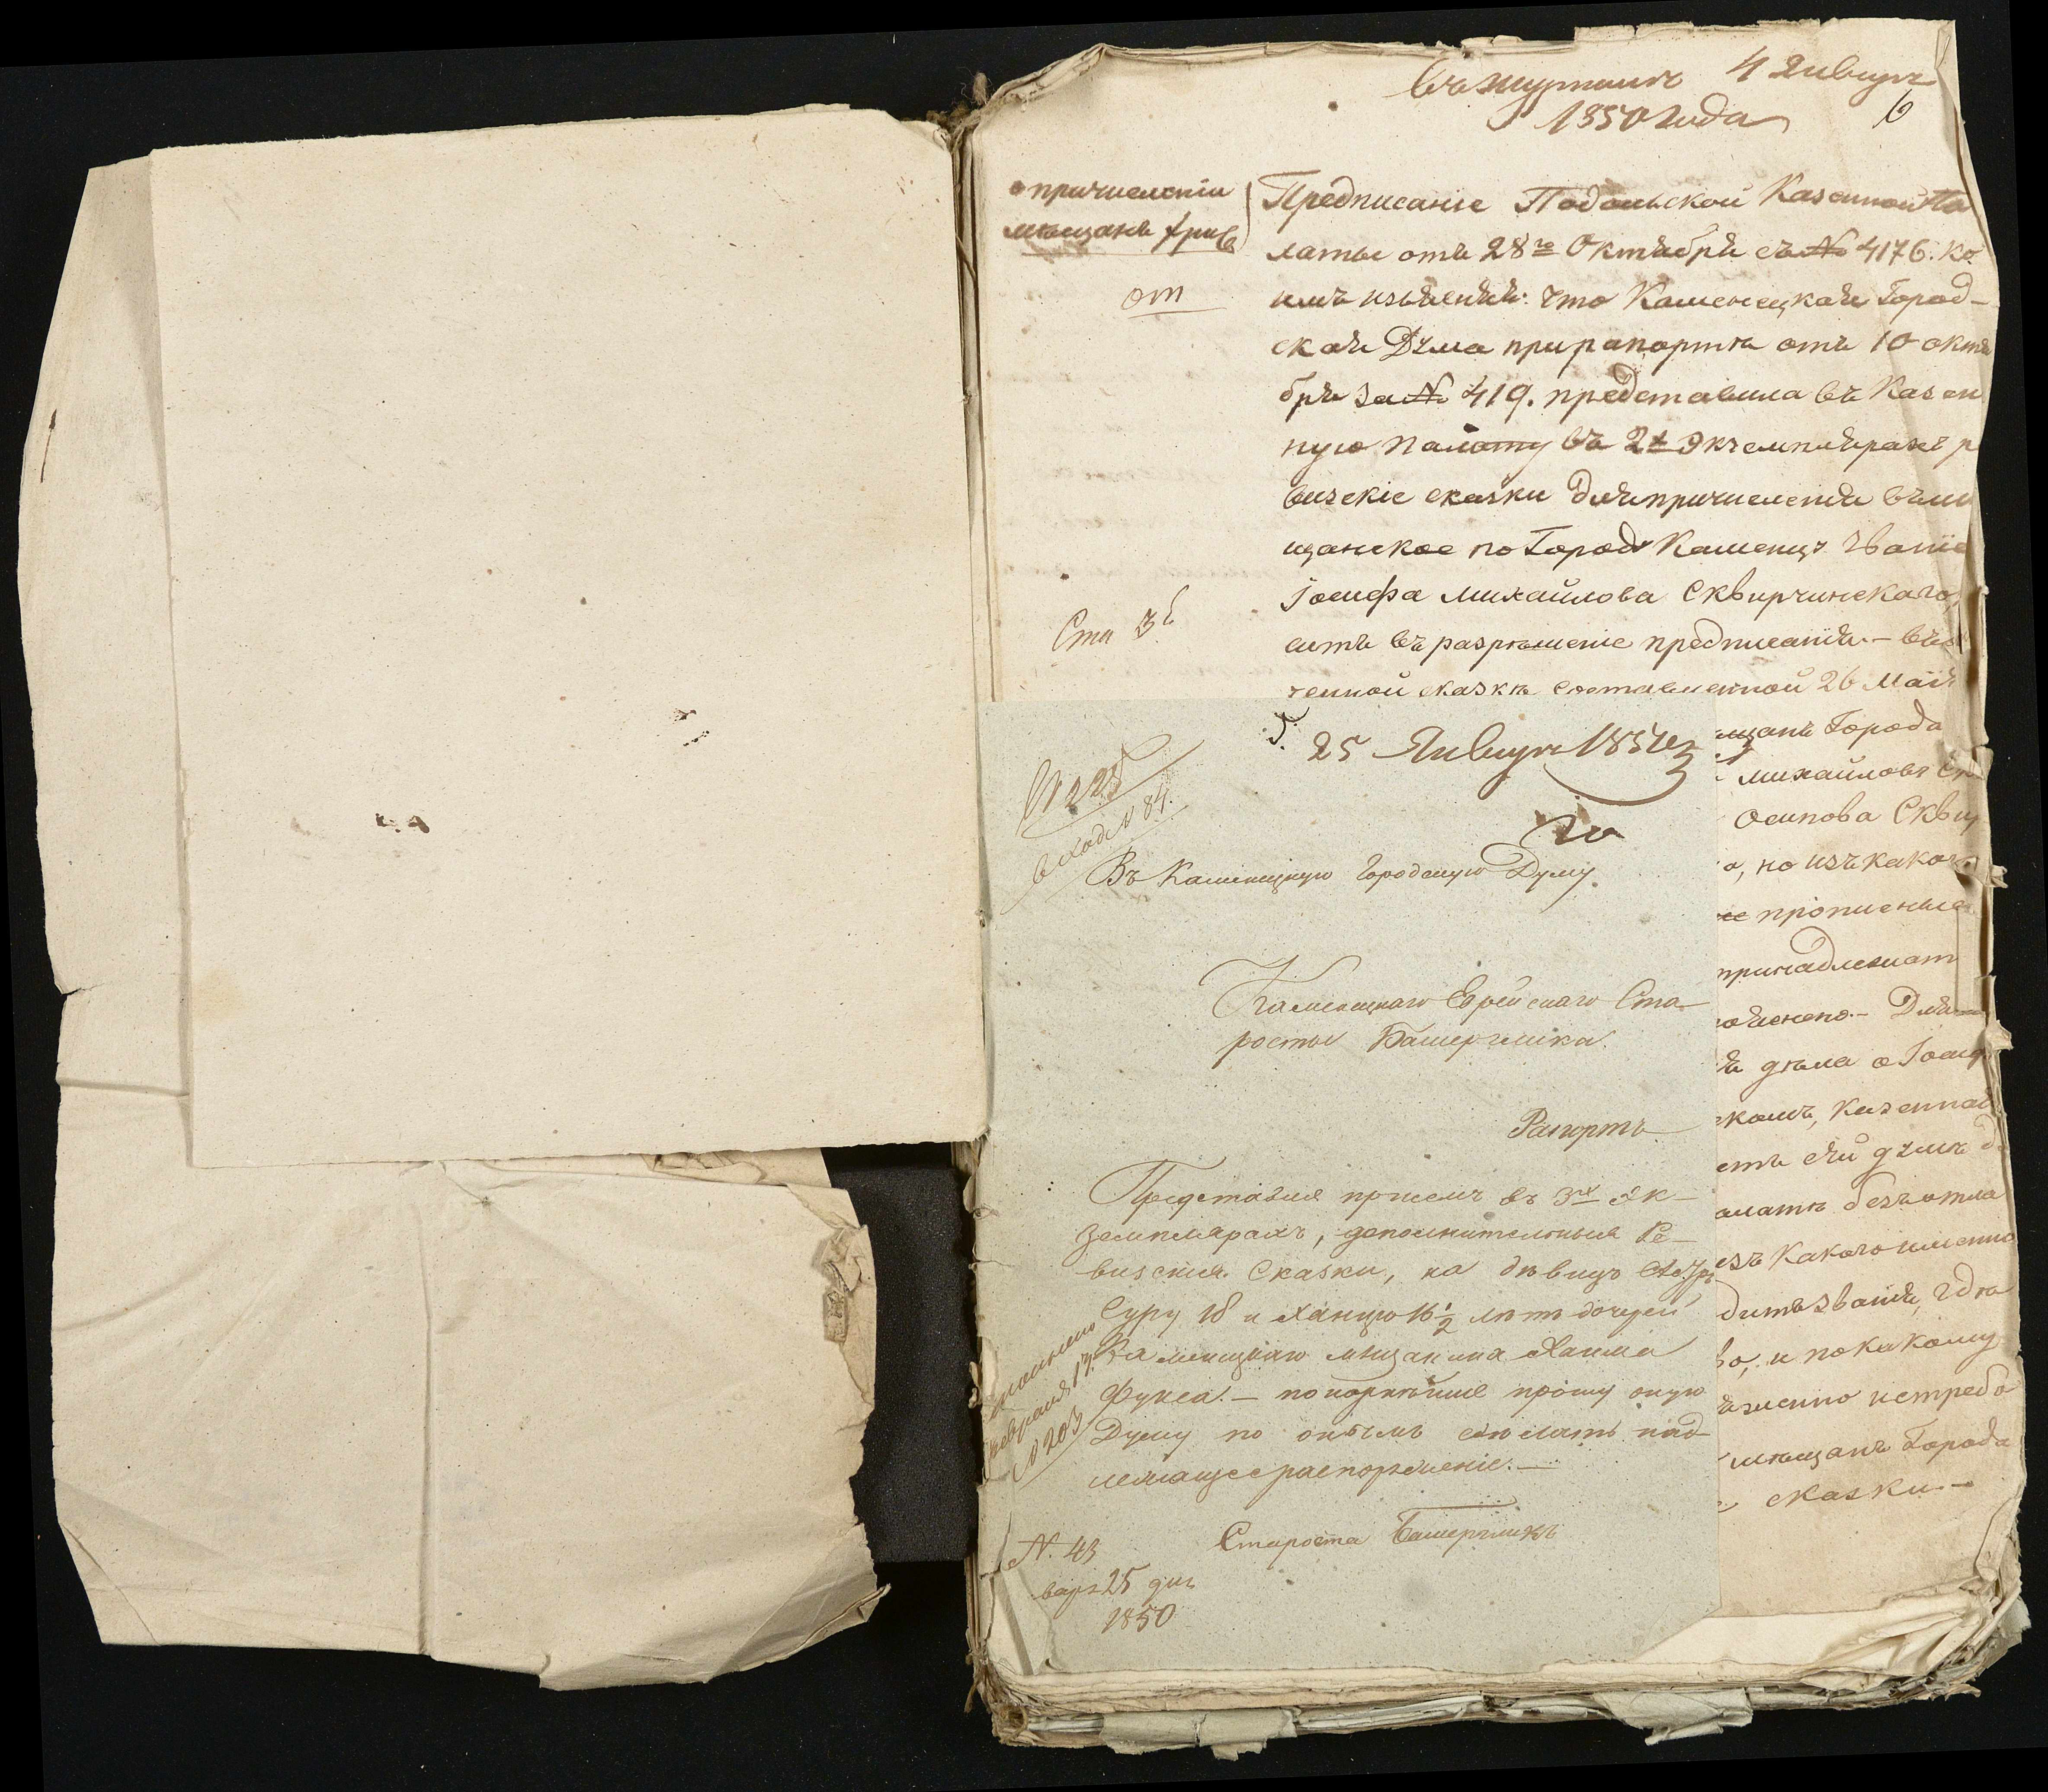 4 Января
1850 года
6
о причисленіи
мѣщанъ
Предписаніе Подольской Казенной Па
латы отъ 28го Октября съ № 4176. ко
имъ изъясняя: что Каменецкая Город-
ская Дума при рапортѣ отъ 10 октя
бря за № 419. представила въ Казен
ную Палату въ 2х Экземплярахъ р
визскіе сказки для причисленія въ мѣ
щанское по Городу Каменцу званіе
Іосифа Михайлова Сквирчинскаго,
въ разрѣшеніе предписанія. – въ
ченной сказкѣ составленной 26 Маія
Ста 3й
щанъ Города
Михайловъ Ск
Осипова Сквир
о, но изъ каког
не прописаны
принадлежат
Для
дѣла о Іосиф
скомъ, Казенная
етъ сей думѣ д
алатѣ безъ отла
изъ какого именно
дитъ званія, гдѣ
во, и по какому
истребо
мѣщанъ Города
сказки. –
25 Января 1850
№ 225
вход № 84.
Въ Каменецкую Городскую Думу.
Каменецкаго Еврейскаго Ста
росты Башерглика.
Рапортъ
Представляя при семъ въ 3х эк-
земплярахъ, дополнительныя Ре-
визскія Сказки, на дѣвицъ
Суру 18 и Ханцю 16½ лѣтъ дочерей
Каменецкаго мѣщанина Хаима
Фукса. – покорнѣйше прошу оную
Думу по онымъ сдѣлать над
лежащее распоряженіе. –
Староста Башергликъ
Февраля 17
№ 203
№. 43
варя 25 дня
1850